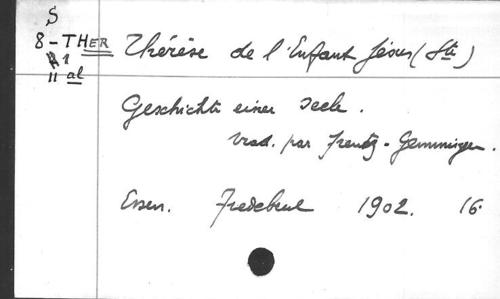 S
8 - THER Thérèse de l'Enfant Jésus (Ste)
1
11 al
Geschichte einer Seele.
trad. par Frentz - Gemmingen.
Essen. Fredebeul 1902. 16°